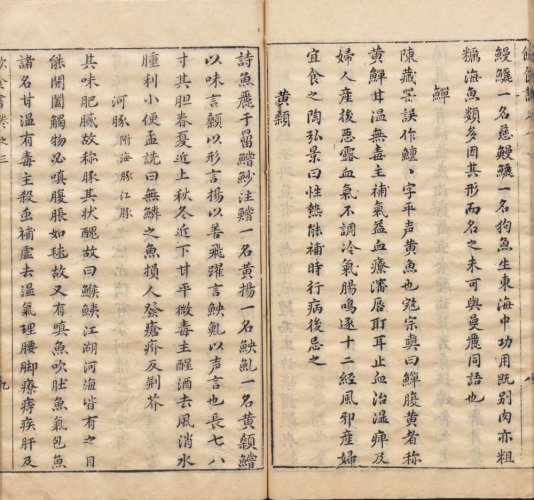 鰻鱺一名慈鰻鱺一名狗魚生東海中功用既別肉亦粗
糲海魚類多因其形而名之未可與曼鱺同語也
鱓
陳藏器誤作鱣字平声黄魚也宼宗奭曰鱓腹黄者称
黄鱓甘温無毒主補氣益血療瀋唇耵耳止血治湿痺及
婦人産後悪露血氣不調冷氣腸鳴逐十二經風邪産婦
宜食之陶弘景曰性熱能補時行病後忌之
黄顙
詩魚麗于罶鱨魦注鱨一名黄揚一名鉠䰲一名黄顙鱨
以味言顙以形言揚以善飛躍言鉠䰲以声言也長七八
寸其胆春夏近上秋冬近下甘平微毒主醒酒去風消水
腫利小便孟詵曰無鱗之魚損人發瘡疥反荆芥
河豚附海豚江豚
其味肥膩故称豚其状醜故曰鯸鮧江湖河海皆有之目
能開闔觸物必嗔腹脹如毬故又有嗔魚吹肚魚氣包魚
諸名甘温有毒主殺虫補虚去湿氣理腰脚療痔疾肝及